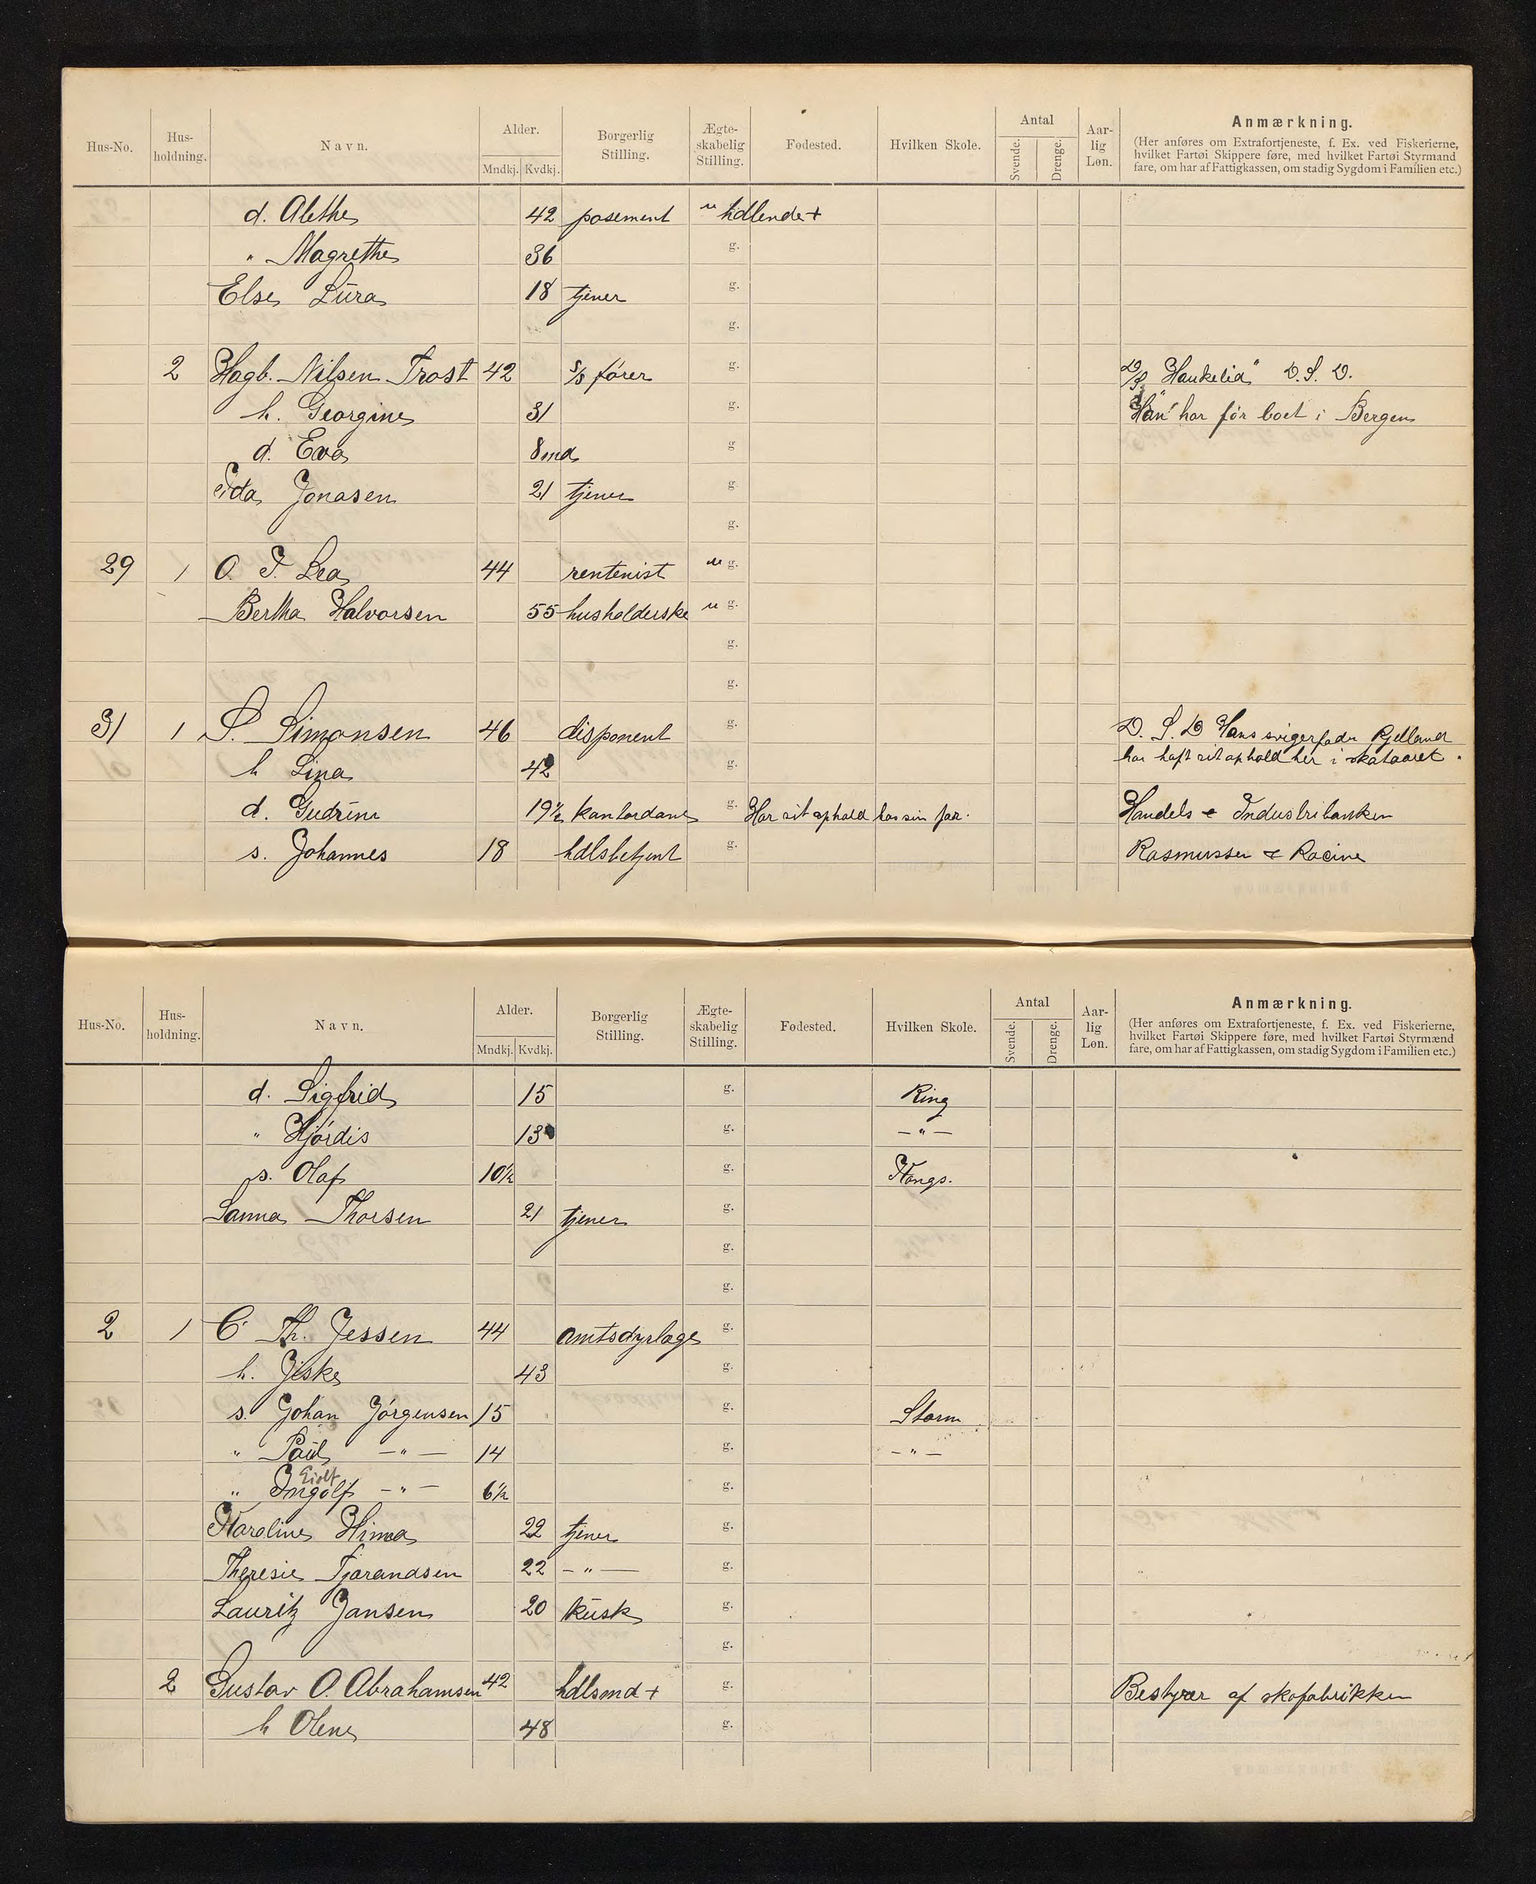 Hus-No. Hus-holdning. Navn. Alder. Mndkj. Kvdkj. Borgerlig Stilling. Ægte-skabelig Stilling. Fødested. Hvilken Skole. Antal Svende. Drenge. Aar-lig Løn. Anmærkning.
(Her anføres om Extrafortjeneste, f. Ex. ved Fiskerierne,
hvilket Fartøi Skippere føre, med hvilket Fartøi Styrmand
fare, om har af Fattigkassen, om stadig Sygdom i Familien etc.)
d. Alethe 42 posement u hdlende +
" Magrethe 36 g.
Else Lura 18 tjener g.
g.
2 Hagb. Nilsen Trost 42 s/s fører g. D/S "Haukelid" D. S. D.
h. Georgine 31 g. Han har før boet i Bergen
d. Eva 8 md g
Ida Jonasen 21 tjener g.
g.
29 1 O. T. Lea 44 rentenist u g.
Bertha Halvorsen 55 husholderske u g.
g.
g.
31 1 S. Simonsen 46 disponent g. D. S. D Hans svigerfader Kjelland
har haft sit ophold her i skataaret.
h Lina 42 g.
d. Gudrun 19½ kontordame g. Har sit ophold hos sin far. Handels & Industribanken
s. Johannes 18 hdlsbetjent g. Rasmussen & Racine
Hus-No. Hus-holdning. Navn. Alder. Mndkj. Kvdkj. Borgerlig Stilling. Ægte-skabelig Stilling. Fødested. Hvilken Skole. Antal Svende. Drenge. Aar-lig Løn. Anmærkning.
(Her anføres om Extrafortjeneste, f. Ex. ved Fiskerierne,
hvilket Fartøi Skippere føre, med hvilket Fartøi Styrmænd
fare, om har af Fattigkassen, om stadig Sygdom i Familien etc.)
d. Sigfrid 15 g. Ring
" Hjórdis 13 g. — " —
s. Olaf 10½ g. Kongs.
Sanna Thorsen 21 tjener g.
g.
g.
2 1 C. Th. Jessen 44 amtsdyrlæge g.
h. Jeske 43 g.
s. Johan Jørgensen 15 g. Storm
" Paul — " — 14 g. — " —
" Ingolf — " — 6½ g.
Karoline Hinna 22 tjener g.
Theresie Tjorandsen 22 — " — g.
Lauritz Jansen 20 kusk g.
g.
2 Gustav O. Abrahamsen 42 hdlsmd + g. Bestyrer af skofabrikken
h Olene 48 g.